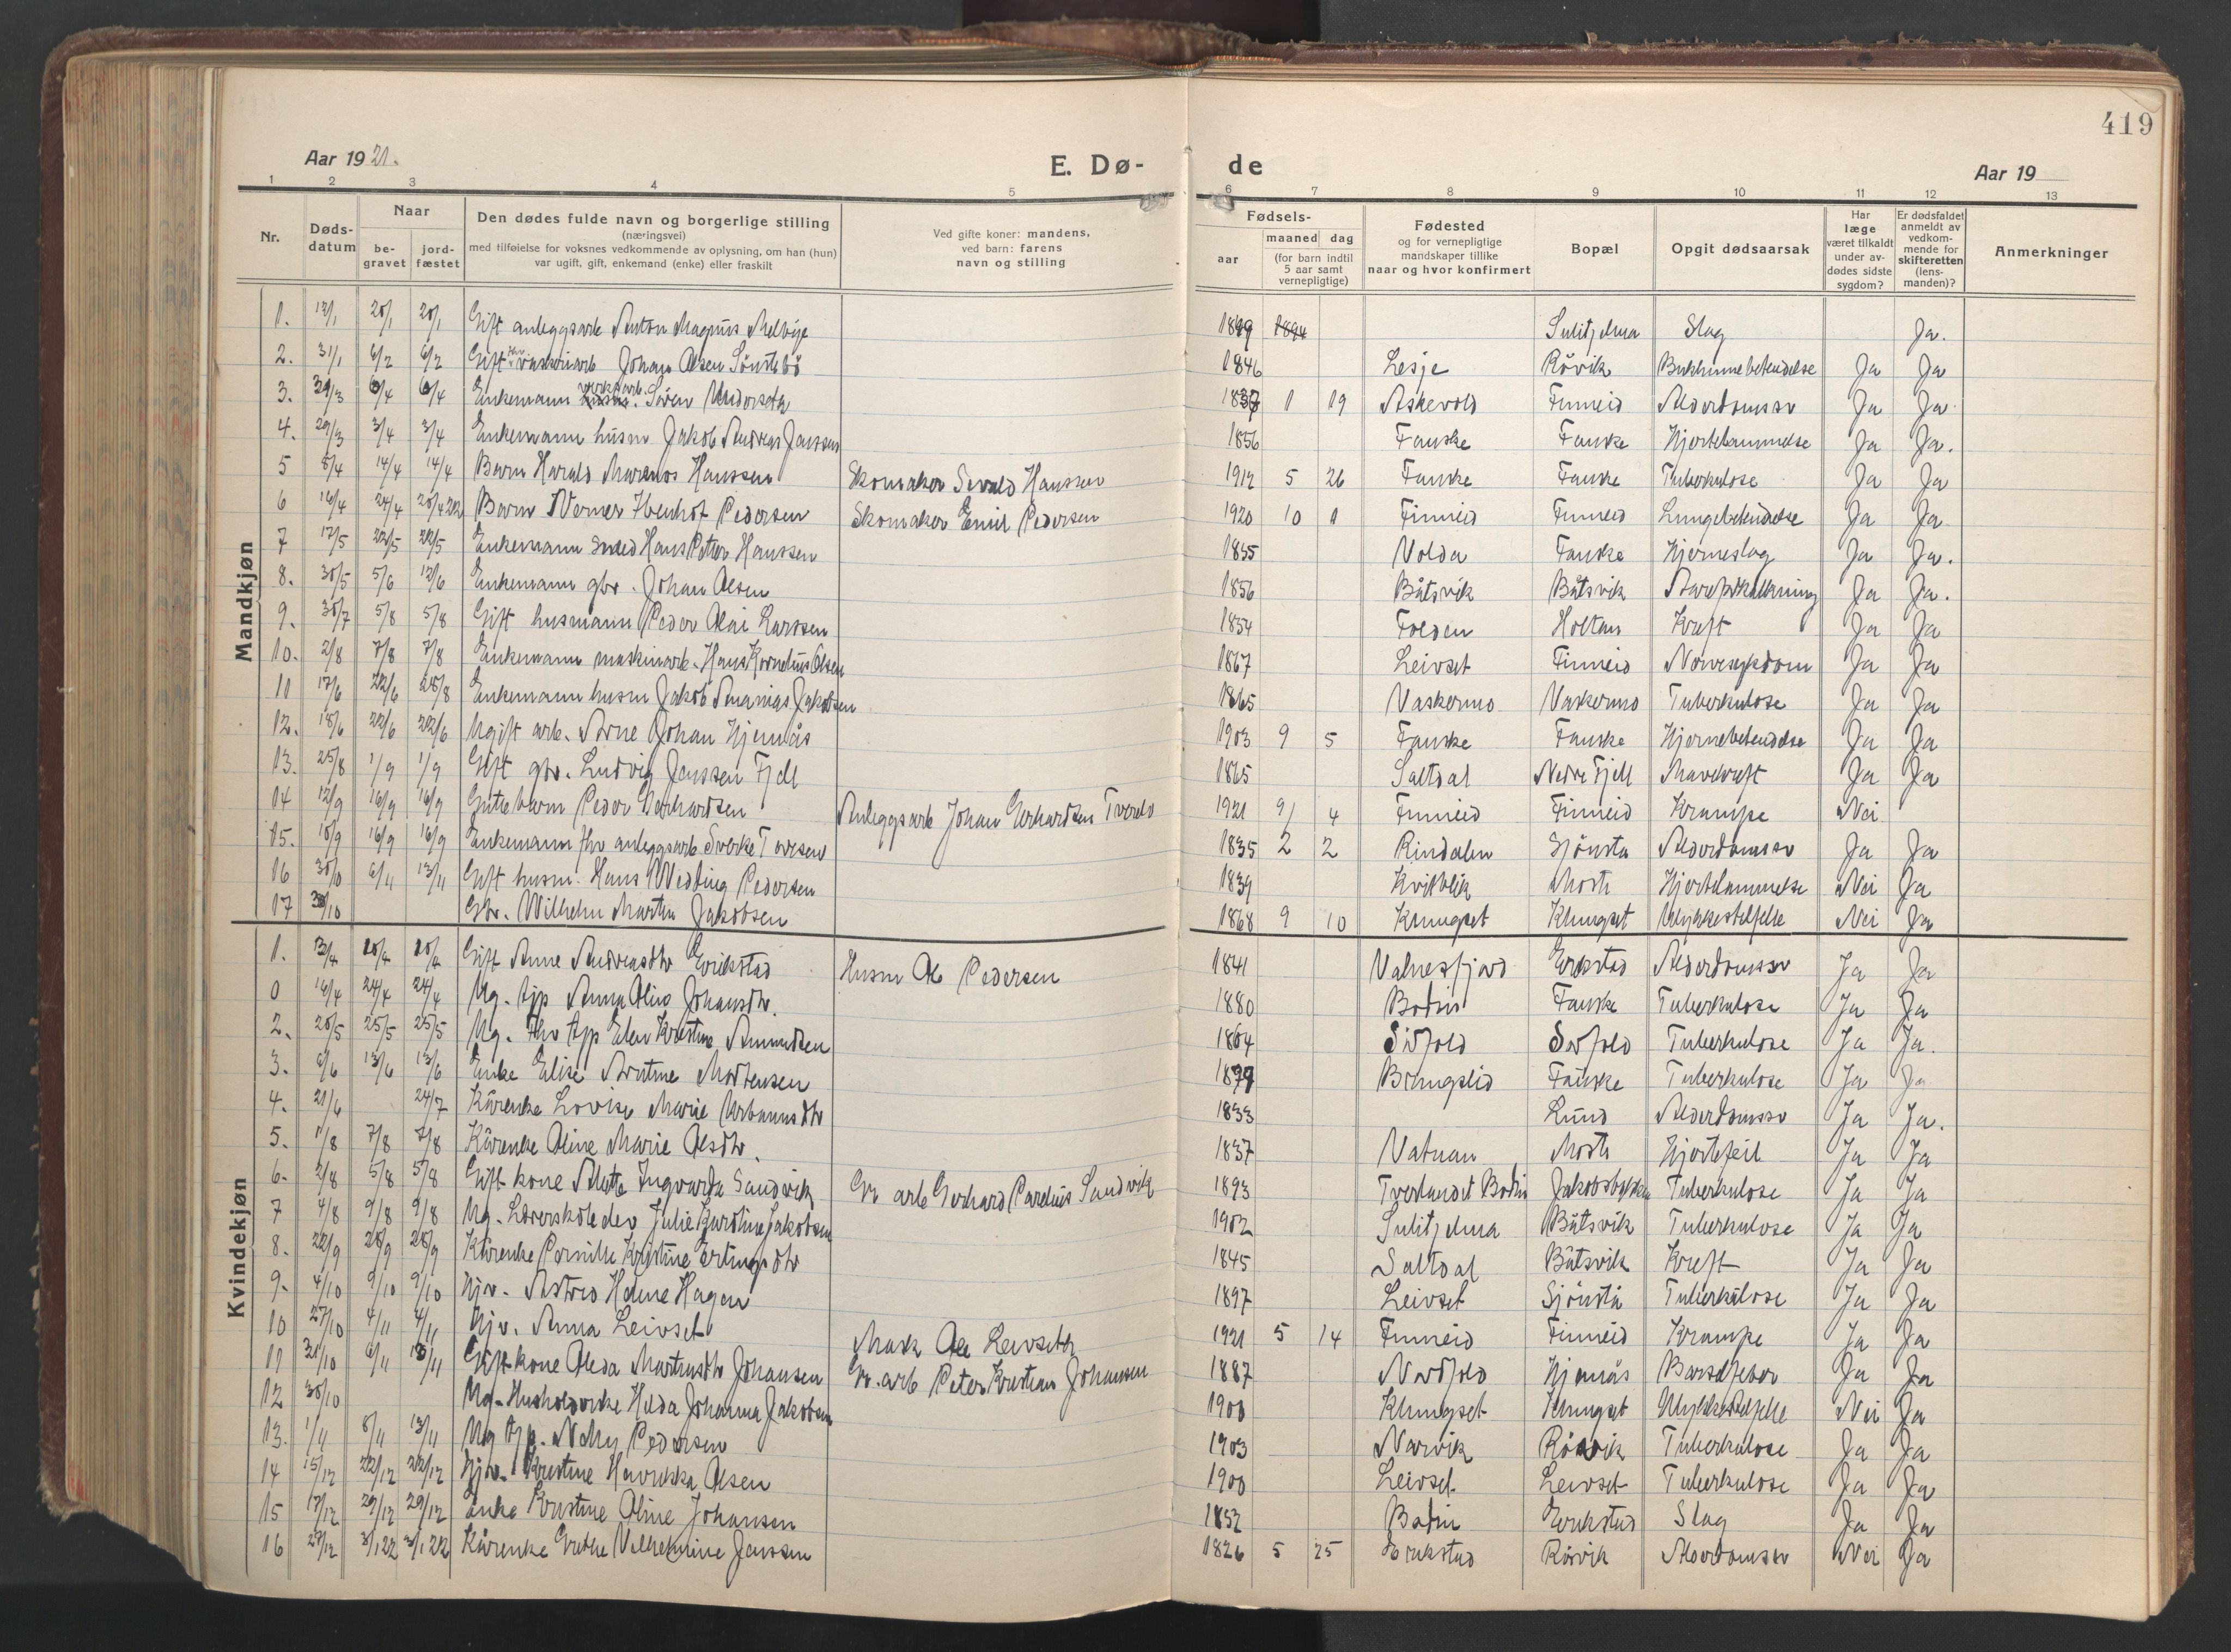 419
Aar 1921.
E. Dø-
de
Aar 19
1 2 3 4 5 6 7 8 9 10 11 12 13
Nr.
Døds-
datum
Naar
be-
gravet
jord-
fæstet
Den dødes fulde navn og borgerlige stilling
(næringsvei)
med tilføielse for voksnes vedkommende av oplysning, om han (hun)
var ugift, gift, enkemand (enke) eller fraskilt
Ved gifte koner: mandens,
ved barn: farens
navn og stilling
Fødsels-
aar
maaned dag
(for barn indtil
5 aar samt
vernepligtige)
Fødested
og for vernepligtige
mandskaper tillike
naar og hvor konfirmert
Bopæl
Opgit dødsaarsak
Har
læge
været tilkaldt
under av-
dødes sidste
sygdom?
Er dødsfaldet
anmeldt av
vedkom-
mende for
skifteretten
(lens-
manden)?
Anmerkninger
Mandkjøn
1. 12/1 20/1 20/1 Gift anleggsarb Anton Magnus Melbye 1894 Sulitjelma Slag Ja.
2. 31/1 6/2 6/2 Gift Johan Olsen Sönstebö 1846 Lesje Rövik Ja Ja
3. 6/4 6/4 Enkemann Sören 1837 1 19 Askevold Finneid Alderdomssv Ja Ja
4. 29/3 3/4 3/4 Enkemann husm Jakob Andreas Janssen 1856 Fauske Fauske Hjertelammelse Ja Ja.
5 8/4 14/4 14/4 Barn Harald Marenus Hanssen Skomaker Sivald Hanssen 1912 5 26 Fauske Fauske Tuberkulose Ja Ja
6 16/4 24/4 Barn Werner Ibenhof Pedersen Skomaker Emil Pedersen 1920 10 1 Finneid Finneid Lungebetendelse Ja Ja
7 17/5 22/5 22/5 Enkemann smed Hans Petter Hanssen 1855 Volda Fauske Hjerneslag Ja Ja.
8. 30/5 5/6 12/6 Enkemann gbr. Johan Olsen 1856 Båtsvik Båtsvik Ja Ja.
9. 30/7 5/8 5/8 Gift husmann Peder Olai Larssen 1854 Folden Holtan Kreft Ja Ja
10. 2/8 7/8 7/8 Enkemann maskinarb. Hans Kornelius Olsen 1867 Leivset Finneid Nervesykdom Ja Ja
11 17/6 22/6 28/8 Enkemann husm Jakob Ananias Jakobsen 1865 Vaskermo Vaskermo Tuberkulose Ja Ja
12. 18/6 22/6 22/6 Ugift arb. Arne Johan Hjemås 1903 9 5 Fauske Fauske Hjernebetendelse Ja Ja
13. 25/8 1/9 1/9 Gift gbr. Ludvig Janssen Fjell 1865 Saltdal Nedre Fjell Mavekreft Ja Ja
14 12/9 16/9 16/9 Guttebarn Peder Gerhardsen Anleggsarb Johan Gerhardsen 1921 9 4 Finneid Finneid Krampe Nei
15. 10/9 16/9 16/9 Enkemann fhv anleggsarb Sverke Toresen 1835 2 2 Rindalen Sjönsta Alderdomssv Ja Ja
16 30/10 6/11 13/11 Gift husm. Hans Wedting Pedersen 1839 Kvikblik Moste Hjertelammelse Nei Ja
17 30/10 Gbr. Wilhelm Martin Jakobsen 1868 9 10 Klungset Klungset Ulykkestilfelle Nei Ja
Kvindekjøn
1. 13/4 20/4 20/4 Gift Anne Andreasdtr Erikstad Husm Ole Pedersen 1841 Valnesfjord Erikstad Alderdomssv Ja Ja
0 16/4 24/4 24/4 Ug. tjp Anna Oline Johansdtr. 1880 Bodin Fauske Tuberkulose Ja Ja
2. 20/5 25/5 25/5 Ug. fhv tjp Elen Kristine Amundsen 1864 Sörfold Sörfold Tuberkulose Ja Ja.
3. 6/6 13/6 13/6 Enke Elise Arntine Mortensen 1879 Brungslid Fauske Tuberkulose Ja Ja
4. 21/6 24/7 Kårenke Lovise Marie Urbanusdtr 1833 Lund Alderdomssv Ja Ja.
5. 1/8 7/8 7/8 Kårenke Oline Marie Olsdtr. 1837 Vatnan Moste Hjertefeil Ja Ja
6. 2/8 5/8 5/8 Gift kone Alette Ingvarda Sandvik Gr arb Gerhard Parelius Sandvik 1893 Tverlandet Bodin Jakobsbakken Tuberkulose Ja Ja
7 4/8 9/8 9/8 Ug. Lærerskoleelev Julie Karoline Jakobsen 1902 Sulitjelma Båtsvik Tuberkulose Ja Ja
8. 22/9 28/9 28/9 Kårenke Pernille Kristine Ertingsdtr 1845 Saltdal Båtsvik Kreft Ja Ja
9. 4/10 9/10 9/10 Hjv. Astrid Helene Hagen 1897 Leivset Sjönstå Tuberkulose Ja Ja
10 27/10 4/11 4/11 Hjv. Anna Leivset Mask Ole Leivseth 1921 5 14 Finneid Finneid Krampe Ja Ja
11 31/10 6/11 13/11 Gift kone Aleda Martinsdtr Johansen Gr. arb Peter Kristian Johansen 1887 Nordfold Hjemås Barselfeber Ja Ja
12 30/10 Ug. Husholderske Hilda Johanna Jakobsen 1900 Klungset Klungset Ulykkestilfelle Nei Ja
13. 1/11 8/11 13/11 Ug tjp. Nelly Pedersen 1903 Narvik Rösvik Tuberkulose Ja Ja
14 15/12 22/12 22/12 Hjv. Kristine Henrikka Olsen 1900 Leivset Leivset Tuberkulose Ja Ja
15 17/12 29/12 29/12 Enke Kristine Oline Johansen 1852 Bodin Erikstad Slag Ja Ja
16 27/12 3/1 22 3/1 22 Kårenke Grethe Vilhelmine Janssen 1826 5 25 Erikstad Rösvik Alderdomssv Nei Ja